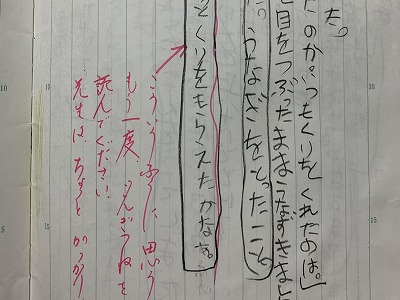 た。
たのか。いつもくりをくれたのは。」
と目をつぶったままうなずきまし
だ。うなぎをとったこと。
くりをもらえたかなあ。
こういうふうに思う
もう一度、
読んでください。
先生は、ちょっとがっかり